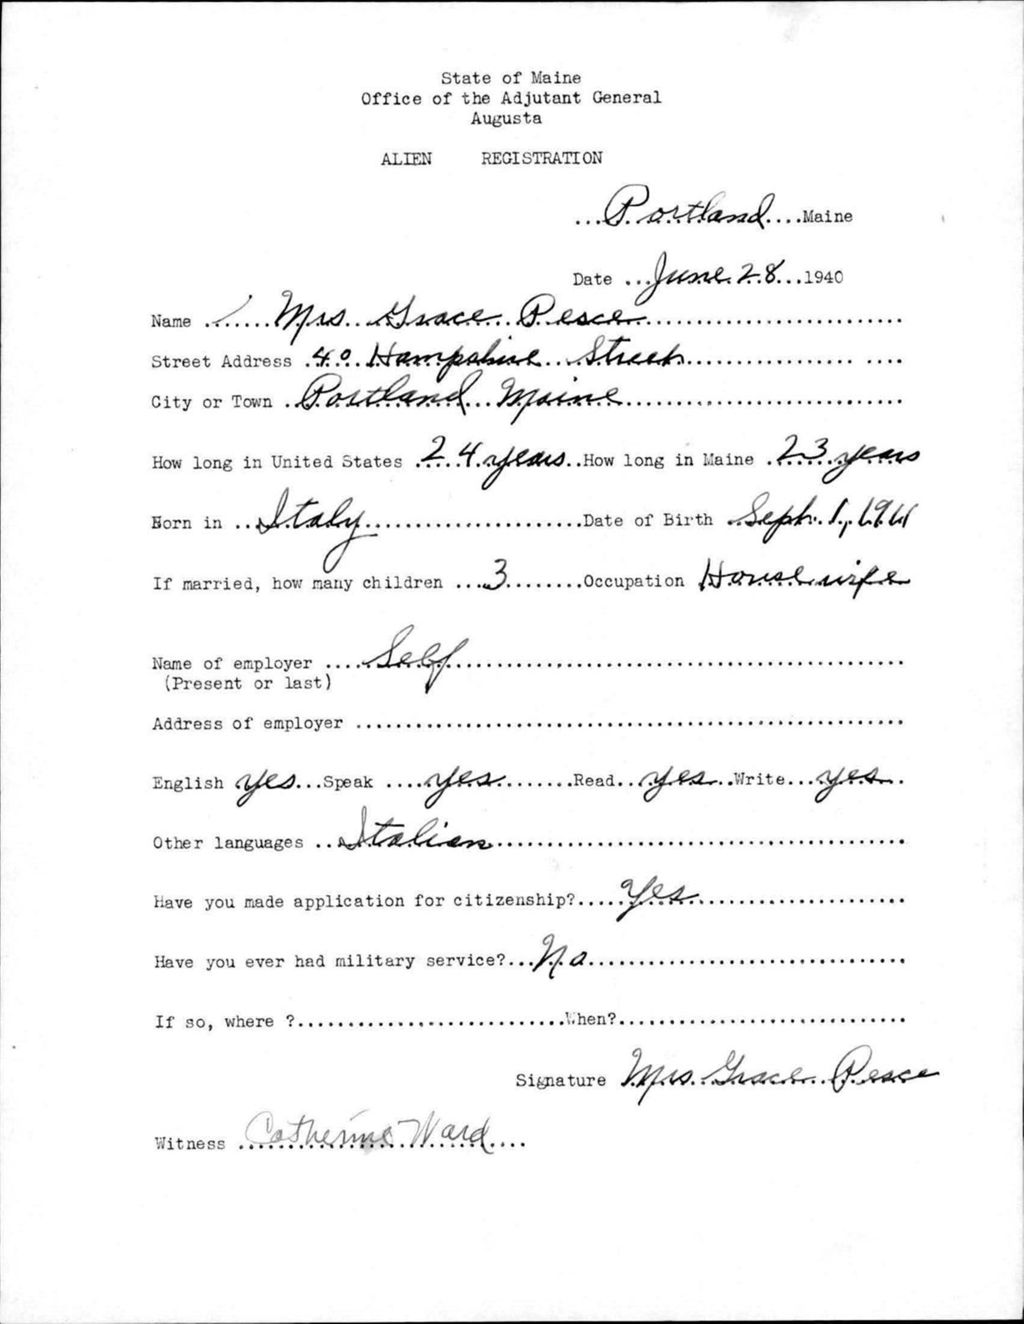 State of Maine
Office of the Adjutant General
Augusta
ALIEN REGISTRATION
...Portland....Maine
Date ...June 28...1940
Name ....... Mrs Grace Pesce
Street Address .40 Hampshire Street
City or Town ..Portland Maine
How long in United States .24 years..How long in Maine .23 years
Born in ..Italy......................Date of Birth Sept. 1, 1911
If married, how many children ...3........Occupation Housewife
Name of employer ....Self
(Present or last)
Address of employer
English yes...Speak ....yes.......Read...yes...Write...yes..
Other languages ..Italian
Have you made application for citizenship?.....Yes
Have you ever had military service?...No
If so, where ?...........................When?
Signature Mrs. Grace Pesce
Witness Catherine Ward